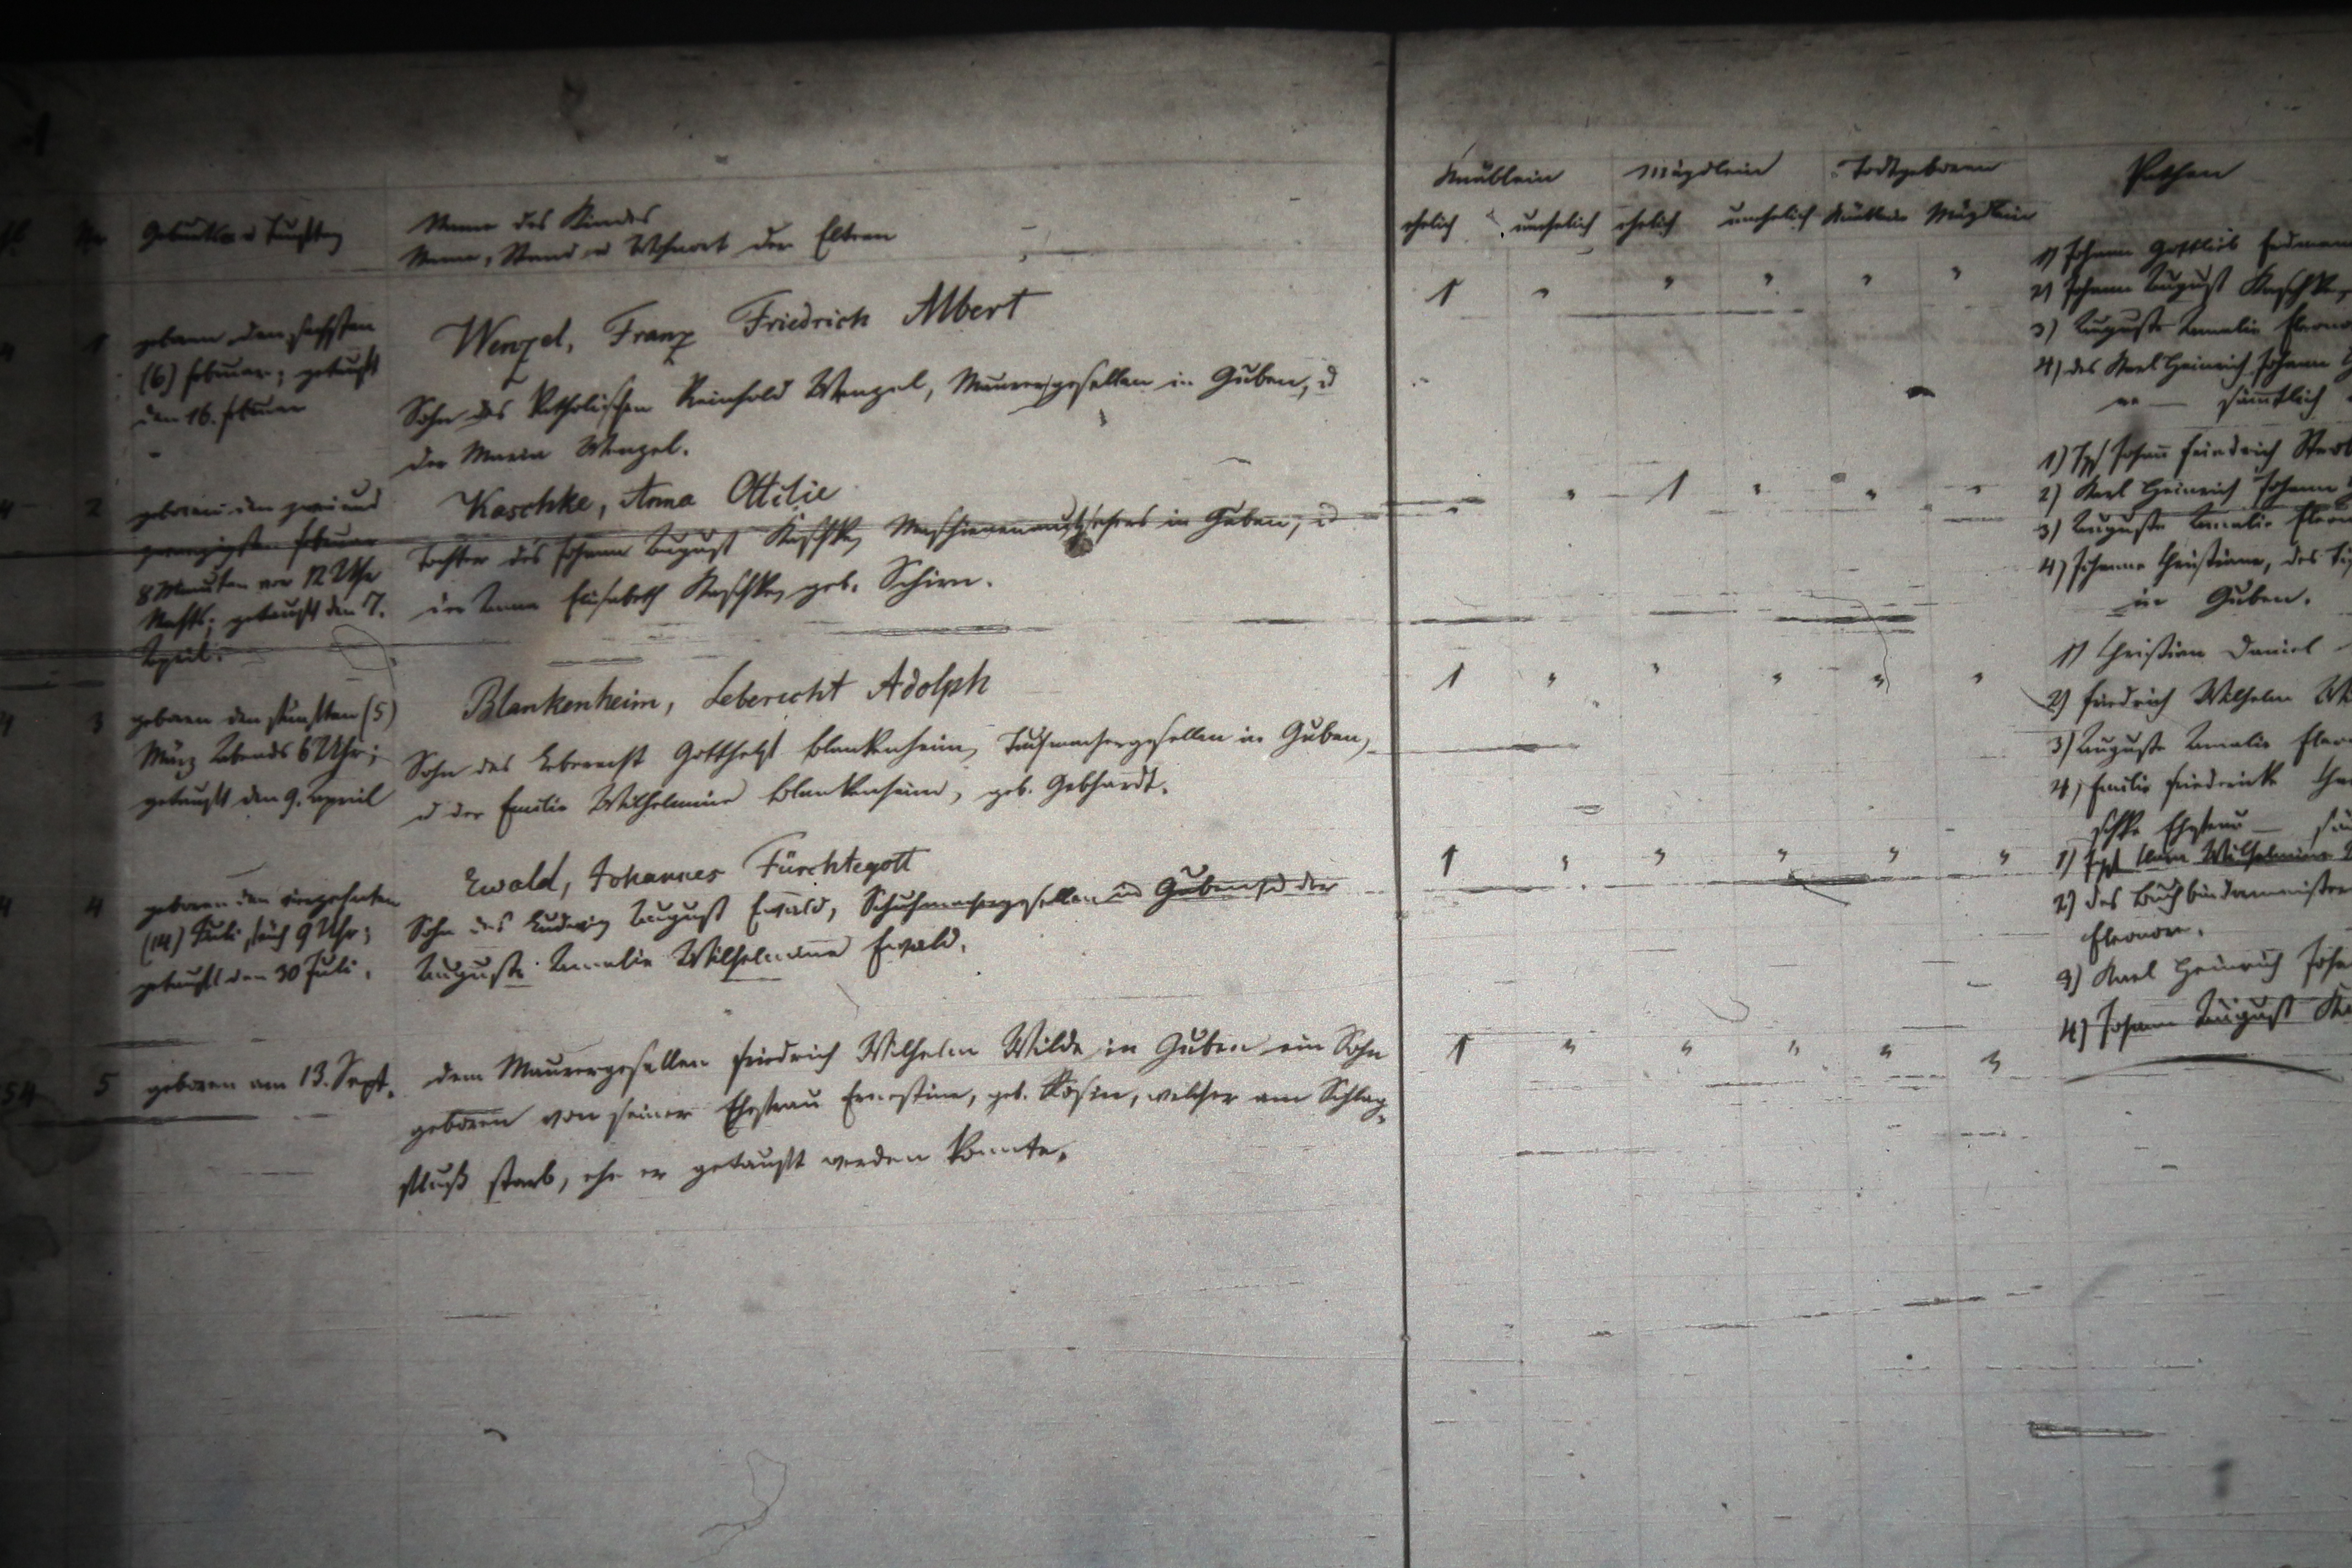 Knäblein Mägdlein Todtgeboren Pathen
ehelich unehelich ehelich unehelich Knäblein Mägdlein
Nr Geburts u Tauftag
Name des Kindes
Name, Stand u Wohnort der Eltern
1 geboren den sechsten
(6) Februar; getauft
den 16. Februar
Wenzel, Franz Friedrich Albert
Sohn des katholischen Reinhold Wenzel, Maurergesellen in Guben, u
der Maria Wenzel.
1 " " " " "
1) Johann Gottlieb
2) Johann August Kaschke,
3) Auguste Amalie
4) des Karl Heinrich Johann
sämmtlich
2 geboren den zwei und
zwanzigsten Februar
8 Minuten vor 12 Uhr
Nachts; getauft den 7.
April.
Kaschke, Anna Ottilie
Tochter des Johann August Kaschke, in Guben, u
der Anna Elisabeth Kaschke, geb. Schirn.
" 1 " " "
1) Johann Friedrich
2) Karl Heinrich Johann
3) Auguste Amalie
4) Johanne Christiane, des
in Guben.
3 geboren den fünften (5)
März Abends 6 Uhr;
getauft den 9. April
Blankenheim, Leberecht Adolph
Sohn des Leberecht Gotthelf Blankenheim, Tuchmachergesellen in Guben,
u der Emilie Wilhelmine Blankenheim, geb. Gebhardt.
1 " " " " "
1) Christian Daniel
2) Friedrich Wilhelm
3) Auguste Amalie
4) Emilie Friedericke
schke Ehefrau —
4 geboren den vierzehnten
(14) Juli früh 9 Uhr;
getauft den 30 Juli.
Ewald, Johannes Fürchtegott
Sohn des Ludwig August Ewald, Schuhmachergesellen in Guben u der
Auguste Amalie Wilhelmine Ewald.
1 " " " " "
1) Wilhelmine
2) des Buchbindermeisters
Eleonore.
3) Karl Heinrich
4) Johann August
54 5 geboren am 13. Sept.
dem Maurergesellen Friedrich Wilhelm Wilde in Guben ein Sohn
geboren von seiner Ehefrau Ernestine, geb. Rosin, welcher am Schlag-
fluß starb, ehe er getauft werden konnte.
1 " " " " "